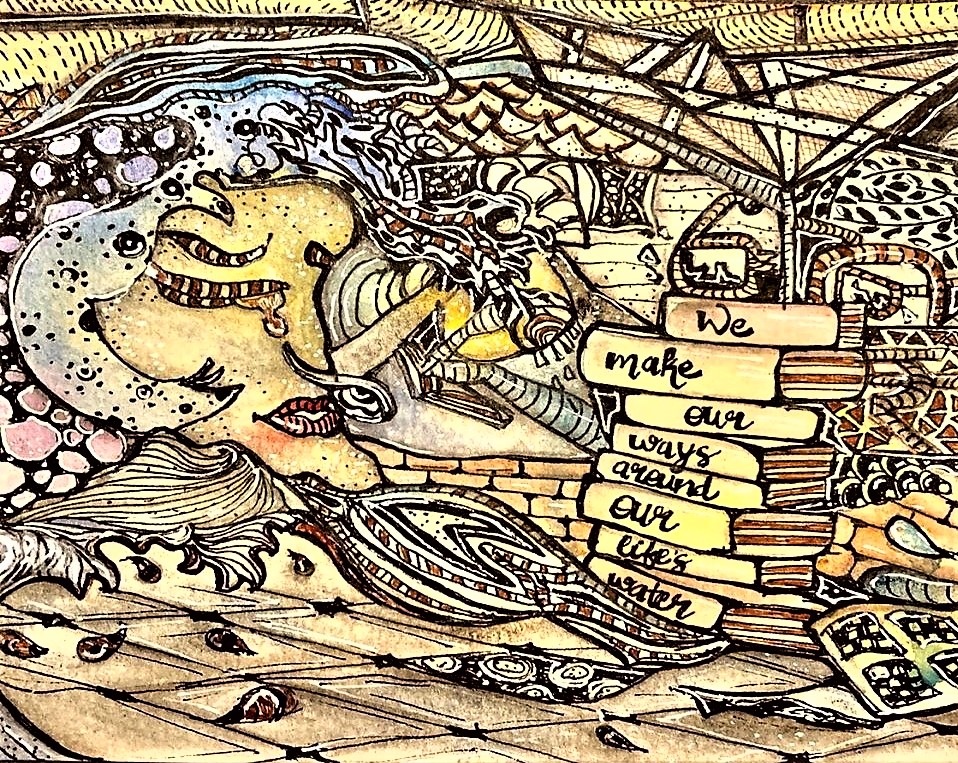 We
make
our
ways
around
our
life's
water